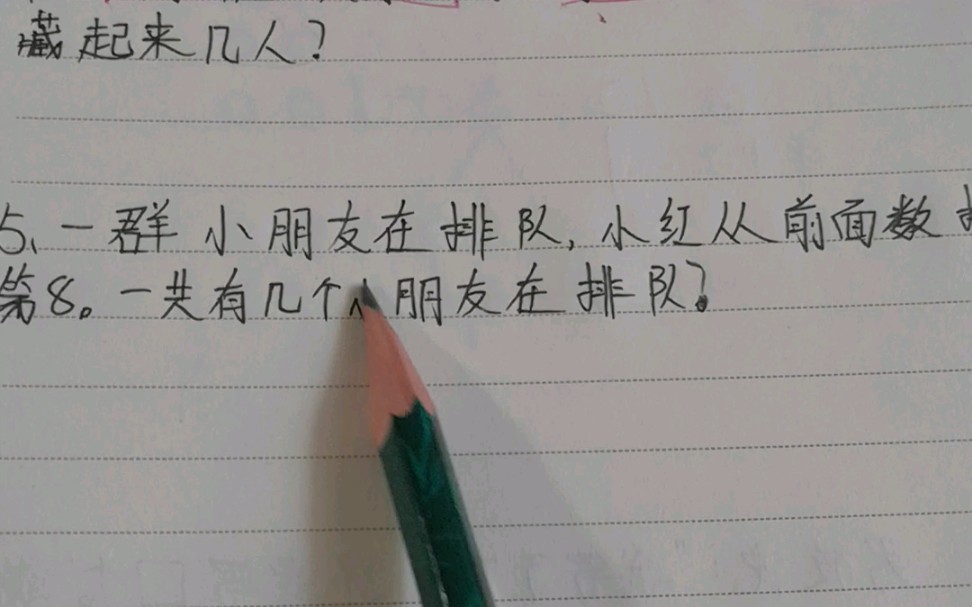 藏起来几人?
5、一群小朋友在排队,小红从前面数
第8。一共有几个小朋友在排队?